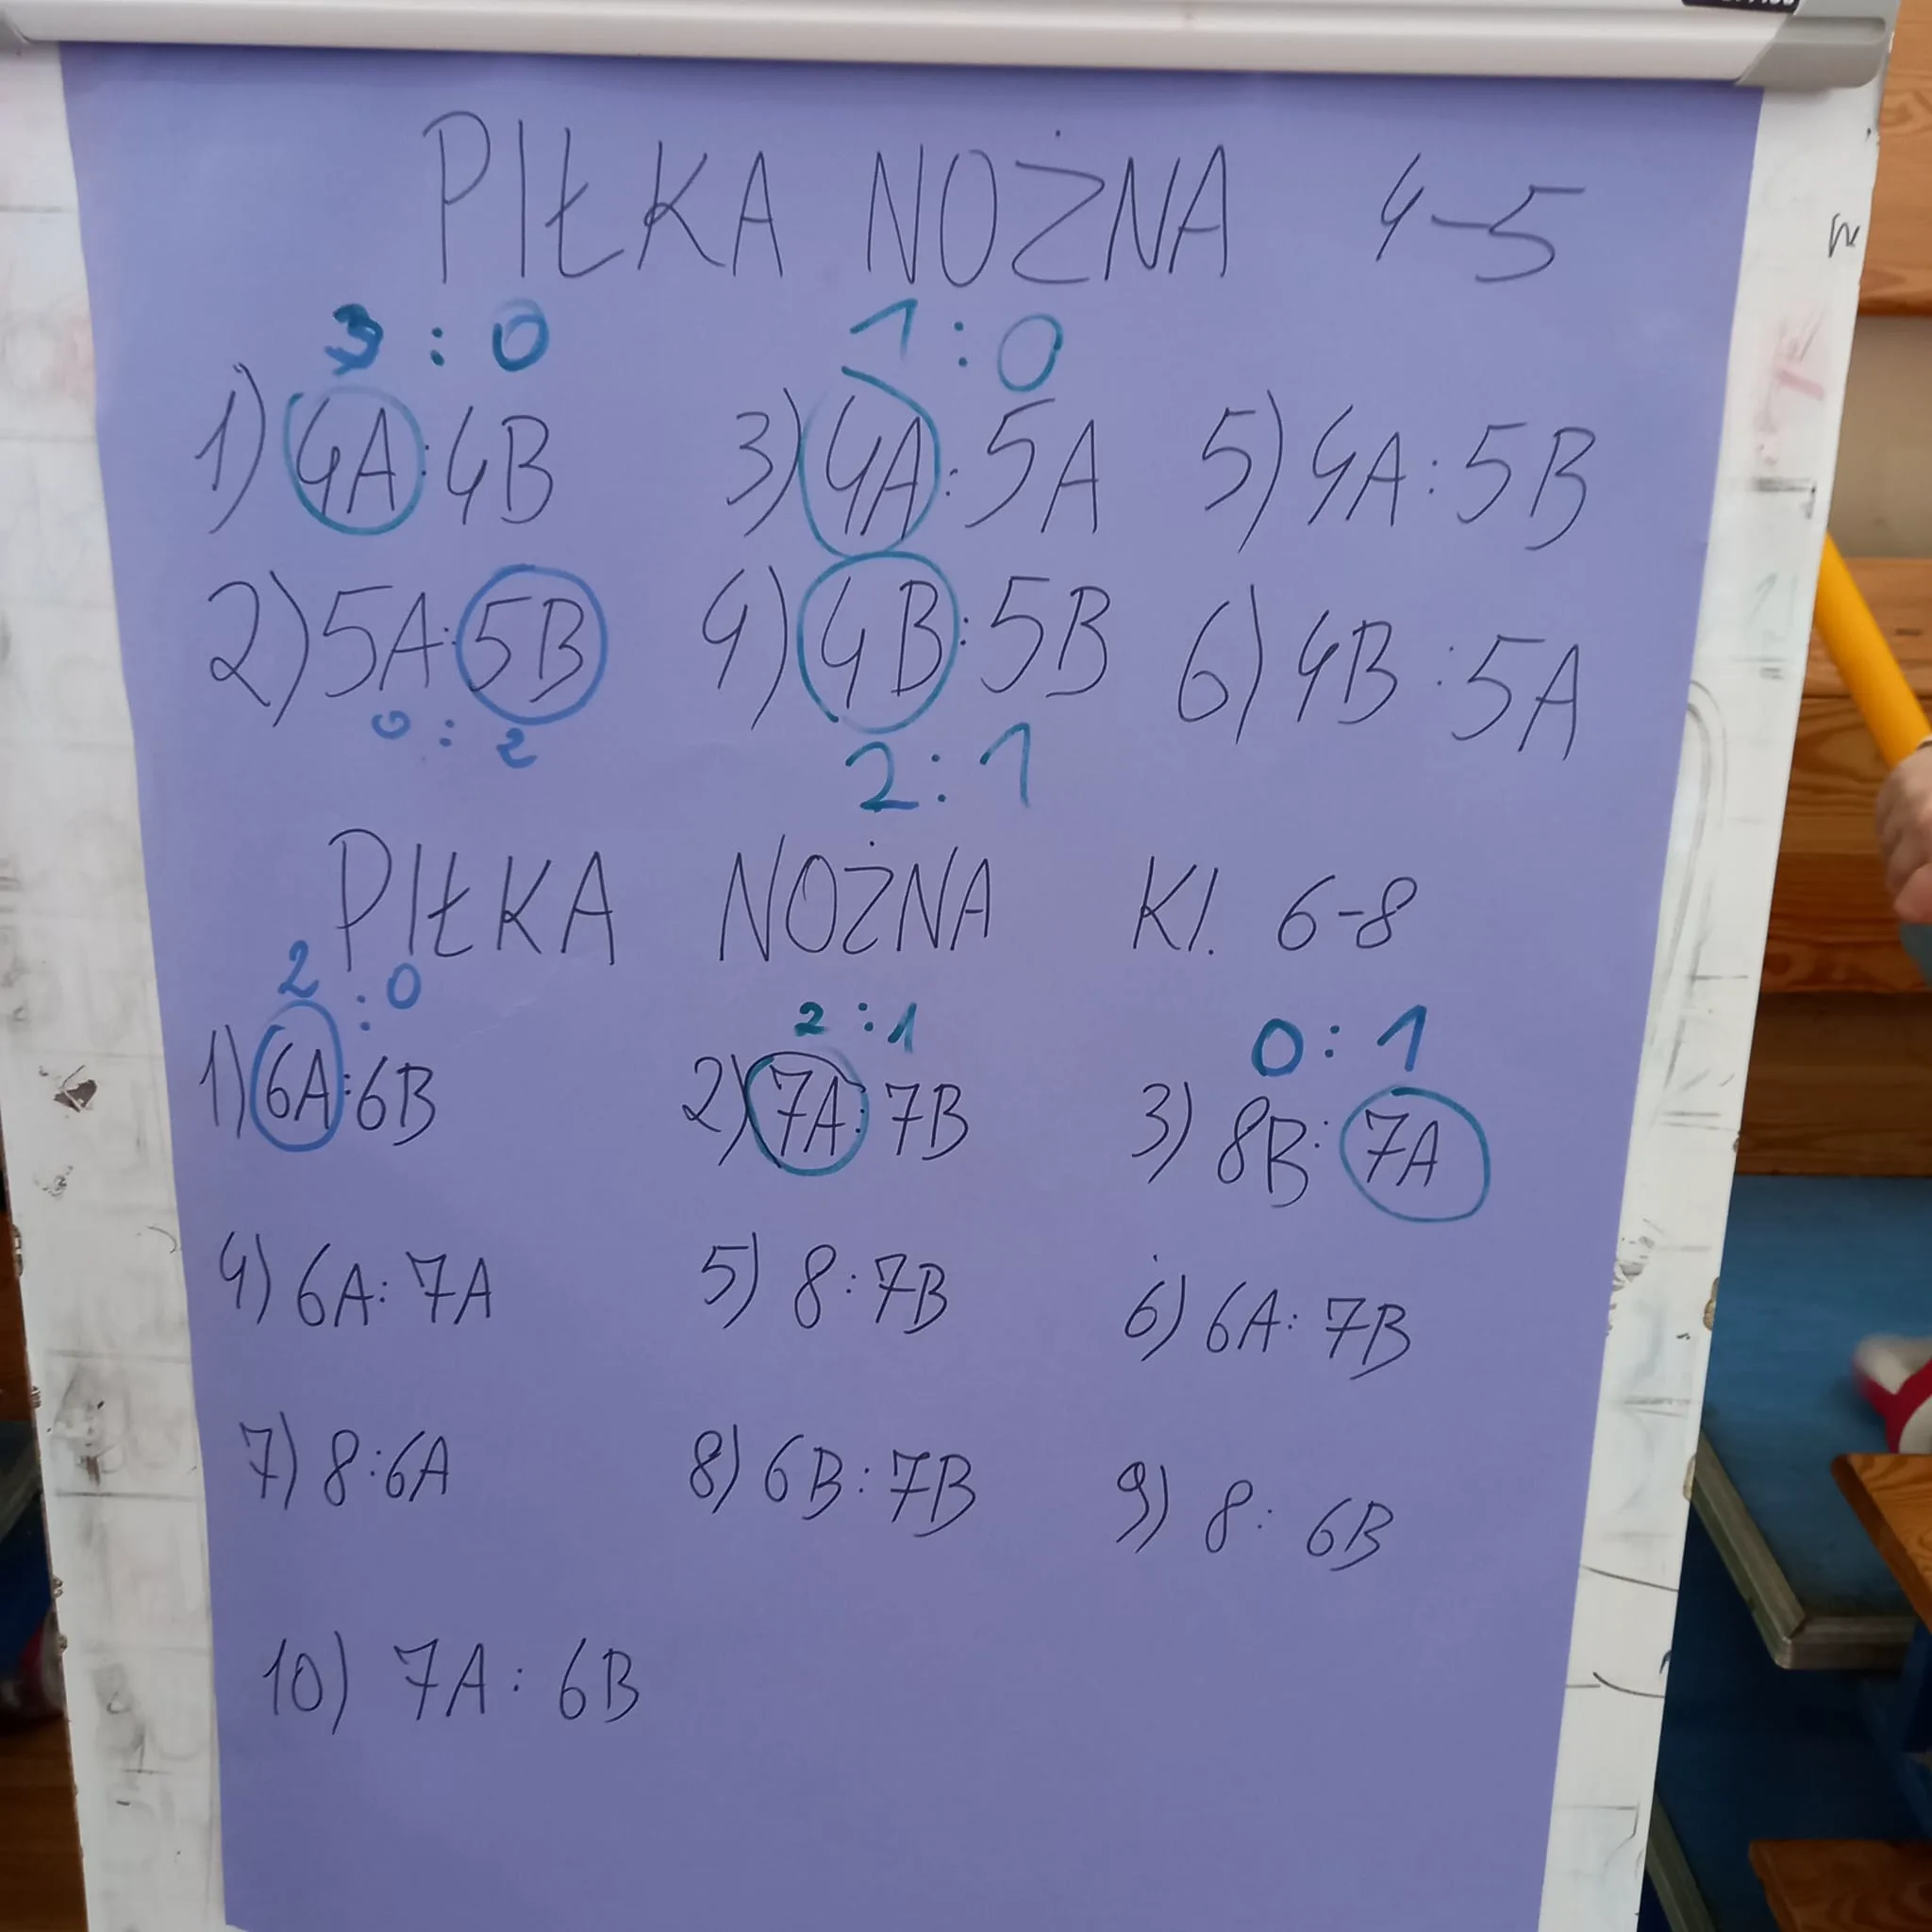 PIŁKA NOŻNA 4-5
3 : 0 1 : 0
1) 4A : 4B 3) 4A : 5A 5) 4A : 5B
2) 5A : 5B 4) 4B : 5B 6) 4B : 5A
0 : 2 2 : 1
PIŁKA NOŻNA Kl. 6-8
2 : 0 2 : 1 0 : 1
1) 6A : 6B 2) 7A : 7B 3) 8B : 7A
4) 6A : 7A 5) 8 : 7B 6) 6A : 7B
7) 8 : 6A 8) 6B : 7B 9) 8 : 6B
10) 7A : 6B